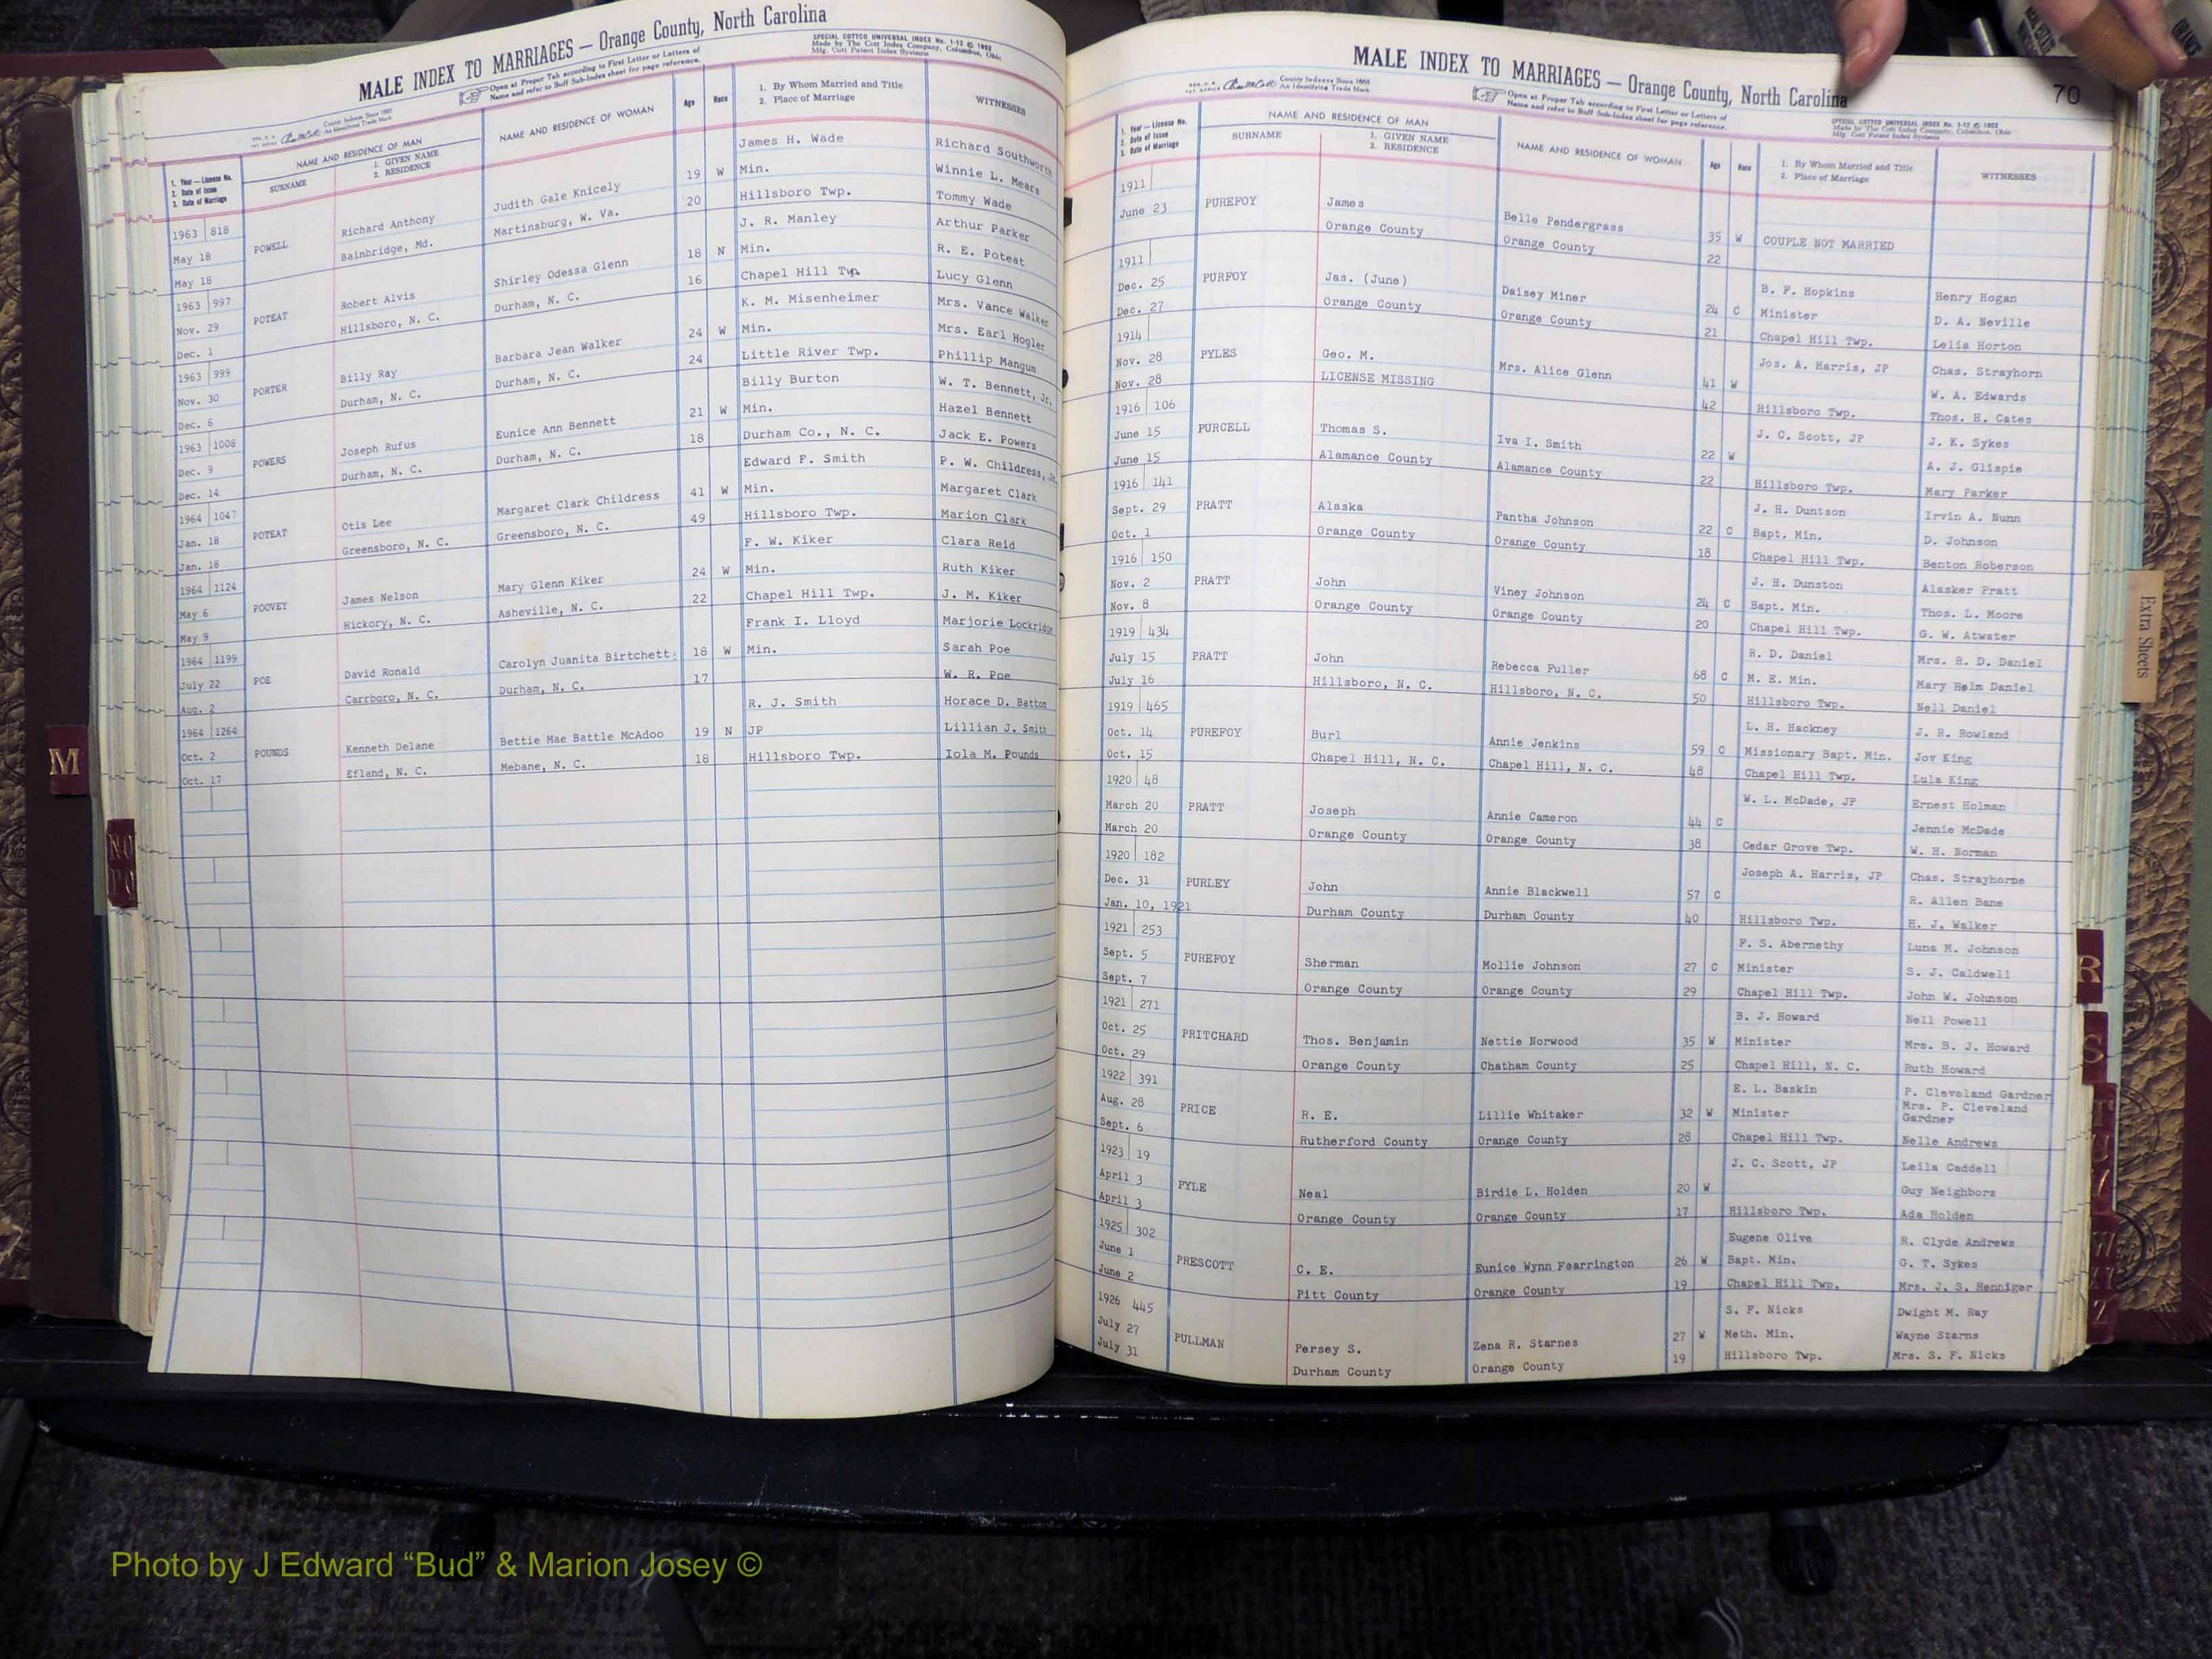 MALE INDEX TO MARRIAGES — Orange County, North Carolina
SPECIAL COTTCO UNIVERSAL INDEX No. 1-12 © 1952
Made by The Cott Index Company, Columbus, Ohio
Mfg. Cott Patent Index Systems
County Indexes Since 1888
An Identifying Trade Mark
Open at Proper Tab according to First Letter or Letters of
Name and refer to Buff Sub-Index sheet for page reference.
1. Year — License No.
2. Date of Issue
3. Date of Marriage
NAME AND RESIDENCE OF MAN
SURNAME
1. GIVEN NAME
2. RESIDENCE
NAME AND RESIDENCE OF WOMAN
Age
Race
1. By Whom Married and Title
2. Place of Marriage
WITNESSES
1963 818 James H. Wade Richard Southworth
May 18 POWELL Richard Anthony Judith Gale Knicely 19 W Min. Winnie L. Mears
May 18 Bainbridge, Md. Martinsburg, W. Va. 20 Hillsboro Twp. Tommy Wade
1963 997 J. R. Manley Arthur Parker
Nov. 29 POTEAT Robert Alvis Shirley Odessa Glenn 18 N Min. R. E. Poteat
Dec. 1 Hillsboro, N. C. Durham, N. C. 16 Chapel Hill Twp. Lucy Glenn
1963 999 K. M. Misenheimer Mrs. Vance Walker
Nov. 30 PORTER Billy Ray Barbara Jean Walker 24 W Min. Mrs. Earl Hogler
Dec. 6 Durham, N. C. Durham, N. C. 24 Little River Twp. Phillip Mangum
1963 1008 Billy Burton W. T. Bennett, Jr.
Dec. 9 POWERS Joseph Rufus Eunice Ann Bennett 21 W Min. Hazel Bennett
Dec. 14 Durham, N. C. Durham, N. C. 18 Durham Co., N. C. Jack E. Powers
1964 1047 Edward F. Smith P. W. Childress, Jr.
Jan. 18 POTEAT Otis Lee Margaret Clark Childress 41 W Min. Margaret Clark
Jan. 18 Greensboro, N. C. Greensboro, N. C. 49 Hillsboro Twp. Marion Clark
1964 1124 F. W. Kiker Clara Reid
May 6 POOVEY James Nelson Mary Glenn Kiker 24 W Min. Ruth Kiker
May 9 Hickory, N. C. Asheville, N. C. 22 Chapel Hill Twp. J. M. Kiker
1964 1199 Frank I. Lloyd Marjorie Lockridge
July 22 POE David Ronald Carolyn Juanita Birtchett 18 W Min. Sarah Poe
Aug. 2 Carrboro, N. C. Durham, N. C. 17 W. R. Poe
1964 1264 R. J. Smith Horace D. Batton
Oct. 2 POUNDS Kenneth Delane Bettie Mae Battle McAdoo 19 N JP Lillian J. Smith
Oct. 17 Efland, N. C. Mebane, N. C. 18 Hillsboro Twp. Iola M. Pounds
M
NO
PQ
MALE INDEX TO MARRIAGES — Orange County, North Carolina
70
County Indexes Since 1888
An Identifying Trade Mark
Open at Proper Tab according to First Letter or Letters of
Name and refer to Buff Sub-Index sheet for page reference.
SPECIAL COTTCO UNIVERSAL INDEX No. 1-12 © 1952
Made by The Cott Index Company, Columbus, Ohio
Mfg. Cott Patent Index Systems
1. Year — License No.
2. Date of Issue
3. Date of Marriage
NAME AND RESIDENCE OF MAN
SURNAME
1. GIVEN NAME
2. RESIDENCE
NAME AND RESIDENCE OF WOMAN
Age
Race
1. By Whom Married and Title
2. Place of Marriage
WITNESSES
1911
June 23 PUREFOY James Belle Pendergrass 35 W COUPLE NOT MARRIED
Orange County Orange County 22
1911 B. F. Hopkins Henry Hogan
Dec. 25 PURFOY Jas. (June) Daisey Miner 24 C Minister D. A. Neville
Dec. 27 Orange County Orange County 21 Chapel Hill Twp. Lelia Horton
1914 Jos. A. Harris, JP Chas. Strayhorn
Nov. 28 PYLES Geo. M. Mrs. Alice Glenn 41 W W. A. Edwards
Nov. 28 LICENSE MISSING 42 Hillsboro Twp. Thos. H. Cates
1916 106 J. C. Scott, JP J. K. Sykes
June 15 PURCELL Thomas S. Iva I. Smith 22 W A. J. Glispie
June 15 Alamance County Alamance County 22 Hillsboro Twp. Mary Parker
1916 141 J. H. Duntson Irvin A. Nunn
Sept. 29 PRATT Alaska Pantha Johnson 22 C Bapt. Min. D. Johnson
Oct. 1 Orange County Orange County 18 Chapel Hill Twp. Benton Roberson
1916 150 J. H. Dunston Alasker Pratt
Nov. 2 PRATT John Viney Johnson 24 C Bapt. Min. Thos. L. Moore
Nov. 8 Orange County Orange County 20 Chapel Hill Twp. G. W. Atwater
1919 434 R. D. Daniel Mrs. R. D. Daniel
July 15 PRATT John Rebecca Fuller 68 C M. E. Min. Mary Helm Daniel
July 16 Hillsboro, N. C. Hillsboro, N. C. 50 Hillsboro Twp. Nell Daniel
1919 465 L. H. Hackney J. R. Rowland
Oct. 14 PUREFOY Burl Annie Jenkins 59 C Missionary Bapt. Min. Jov King
Oct. 15 Chapel Hill, N. C. Chapel Hill, N. C. 48 Chapel Hill Twp. Lula King
1920 48 W. L. McDade, JP Ernest Holman
March 20 PRATT Joseph Annie Cameron 44 C Jennie McDade
March 20 Orange County Orange County 38 Cedar Grove Twp. W. H. Norman
1920 182 Joseph A. Harris, JP Chas. Strayhorne
Dec. 31 PURLEY John Annie Blackwell 57 C R. Allen Bane
Jan. 10, 1921 Durham County Durham County 40 Hillsboro Twp. H. J. Walker
1921 253 F. S. Abernethy Luna M. Johnson
Sept. 5 PUREFOY Sherman Mollie Johnson 27 C Minister S. J. Caldwell
Sept. 7 Orange County Orange County 29 Chapel Hill Twp. John W. Johnson
1921 271 B. J. Howard Nell Powell
Oct. 25 PRITCHARD Thos. Benjamin Nettie Norwood 35 W Minister Mrs. B. J. Howard
Oct. 29 Orange County Chatham County 25 Chapel Hill, N. C. Ruth Howard
1922 391 E. L. Baskin P. Cleveland Gardner
Aug. 28 PRICE R. E. Lillie Whitaker 32 W Minister Mrs. P. Cleveland Gardner
Sept. 6 Rutherford County Orange County 28 Chapel Hill Twp. Nelle Andrews
1923 19 J. C. Scott, JP Leila Caddell
April 3 PYLE Neal Birdie L. Holden 20 W Guy Neighbors
April 3 Orange County Orange County 17 Hillsboro Twp. Ada Holden
1925 302 Eugene Olive R. Clyde Andrews
June 1 PRESCOTT C. E. Eunice Wynn Fearrington 26 W Bapt. Min. G. T. Sykes
June 2 Pitt County Orange County 19 Chapel Hill Twp. Mrs. J. S. Henniger
1926 445 S. F. Nicks Dwight M. Ray
July 27 PULLMAN Persey S. Zena R. Starnes 27 W Meth. Min. Wayne Starns
July 31 Durham County Orange County 19 Hillsboro Twp. Mrs. S. F. Nicks
Extra Sheets
R
S
Photo by J Edward “Bud” & Marion Josey ©